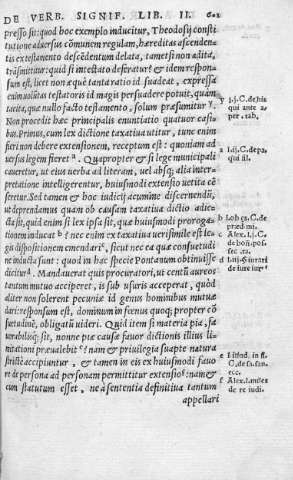 DE VERB. SIGNIF. LIB. II.
presso sit: quod hoc exemplo inducitur, Theodosij consti
tutione aduersus cõmunem regulam, hæreditas ascenden
tis ex testamento descẽdentum delata, tametsi non adita,
trãsmittitur: quid si intestato deferatur? & idem respon
sum est, licet non æquè tanta ratio id suadeat, expressa
enim uoluntas testatoris id magis persuadere potuit, quàm
tacita, quæ nullo facto testamento, solùm præsumitur y.
Non procedit hæc principalis enuntiatio quatuor casi-
bus. Primus, cum lex dictione taxatiua utitur, tunc enim
fieri non debere extensionem, receptum est: quoniam ad
uersus legem fieret a. Quapropter & si lege municipali
caueretur, ut eius uerba ad literam, uel absq; alia inter-
pretatione intelligerentur, huiusmodi extensio uetita cẽ
seretur. Sed tamen & hoc iudicij acumine discernendũ,
ut deprendamus quam ob causam taxatiua dictio adie-
cta sit, quid enim si lex ipsa sit, quæ huiusmodi proroga-
tionem inducat b? nec enim ex taxatiua uerisimile est le-
gis dispositionem emendari c, sicut nec ea quæ consuetudi
ne inducta sunt: quod in hac specie Pontanum obtinuisse
dicitur d. Mandauerat quis procuratori, ut centũ aureos
tantum mutuo acciperet, is sub usuris acceperat, quòd
aliter non solerent pecuniæ id genus hominibus mutuæ
dari: responsum est, dominum in fœnus quoq; propter cõ
suetudinẽ, obligatũ uideri. Quid item si materia pia, fa
uorabilisq; sit, nonne piæ causæ fauor dictionis illius li-
mitationi præualebit e? nam & priuilegia suapte natura
strictè accipiuntur, & tamen in eis ex huiusmodi fauo
re de persona ad personam permittitur extensio f: nam &
cùm statutum esset, ne à sententia definitiua tantum
appellari
y l.j. C. de his
qui ante a-
per. tab.
a l.ij. C. de pa.
qui fil.
C. de
præd. mi.
c Alex. l.j. C.
de bon. pos.
sec. ta.
de iure iur.
C. de sa. san.
ecc.
f Alex. l. under
de re iudi.